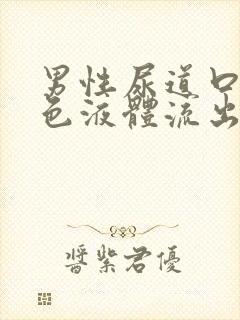 男性尿道口
色液體流出
醬紫君優